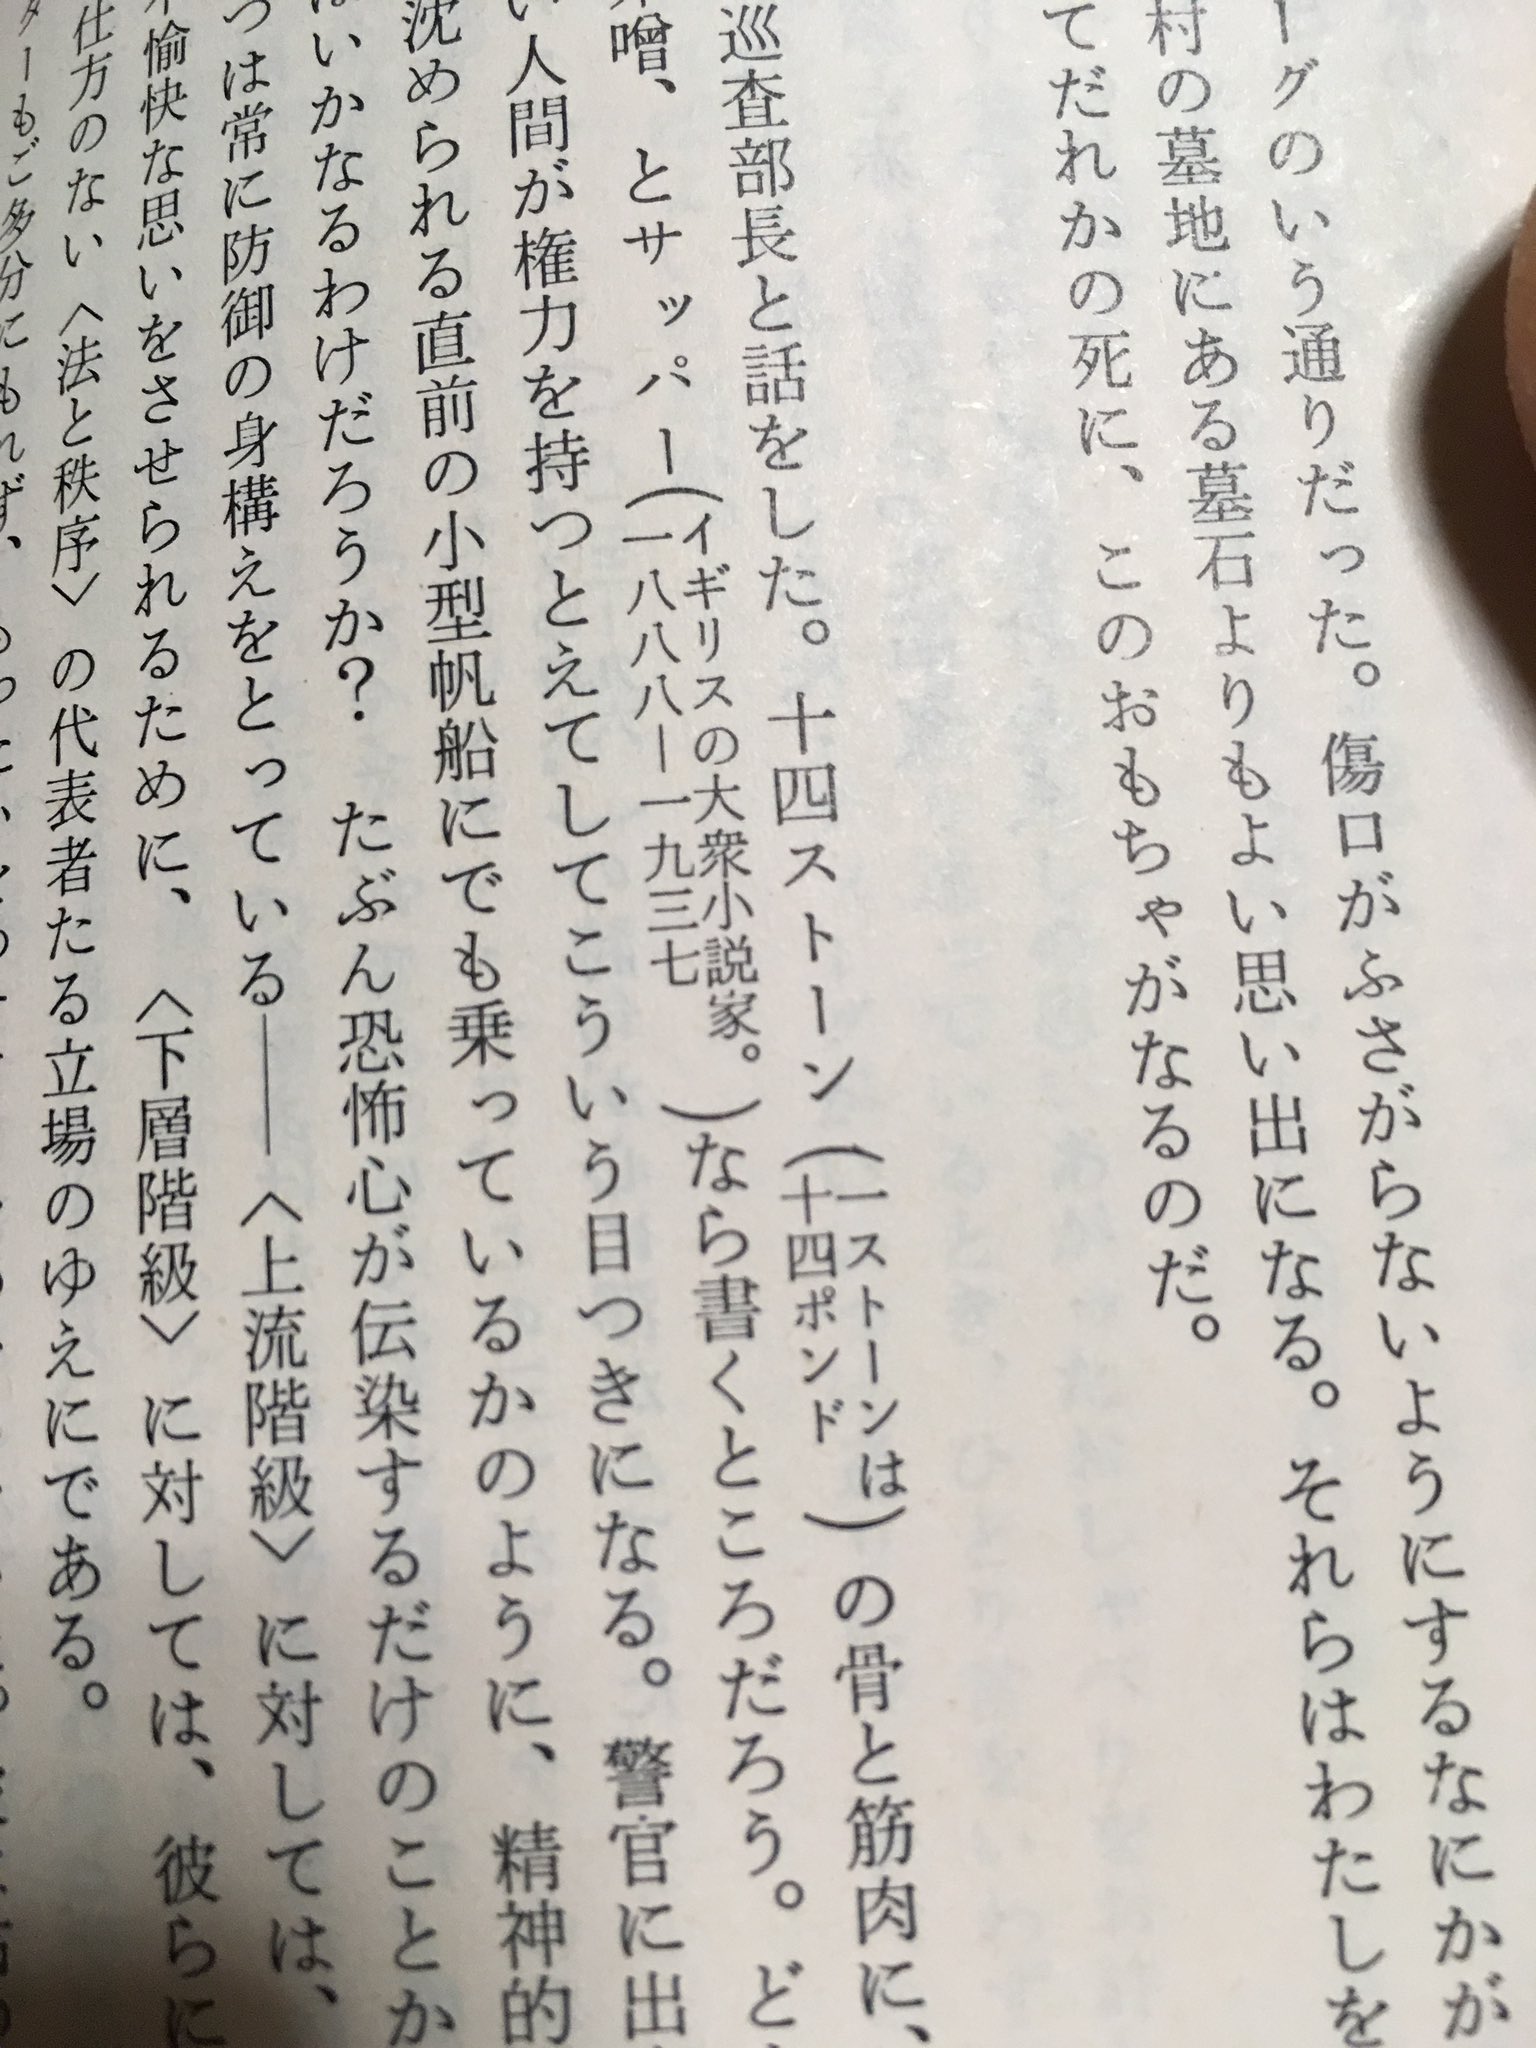 ーグのいう通りだった。傷口がふさがらないようにするなにかが
村の墓地にある墓石よりもよい思い出になる。それらはわたしを
てだれかの死に、このおもちゃがなるのだ。
巡査部長と話をした。十四ストーン(一ストーンは十四ポンド)の骨と筋肉に、
噌、とサッパー(イギリスの大衆小説家。一八八八―一九三七)なら書くところだろう。ど
い人間が権力を持つとえてしてこういう目つきになる。警官に出
沈められる直前の小型帆船にでも乗っているかのように、精神的
はいかなるわけだろうか? たぶん恐怖心が伝染するだけのことか
つは常に防御の身構えをとっている――〈上流階級〉に対しては、
愉快な思いをさせられるために、〈下層階級〉に対しては、彼らに
仕方のない〈法と秩序〉の代表者たる立場のゆえにである。
ターもご多分にもれず、